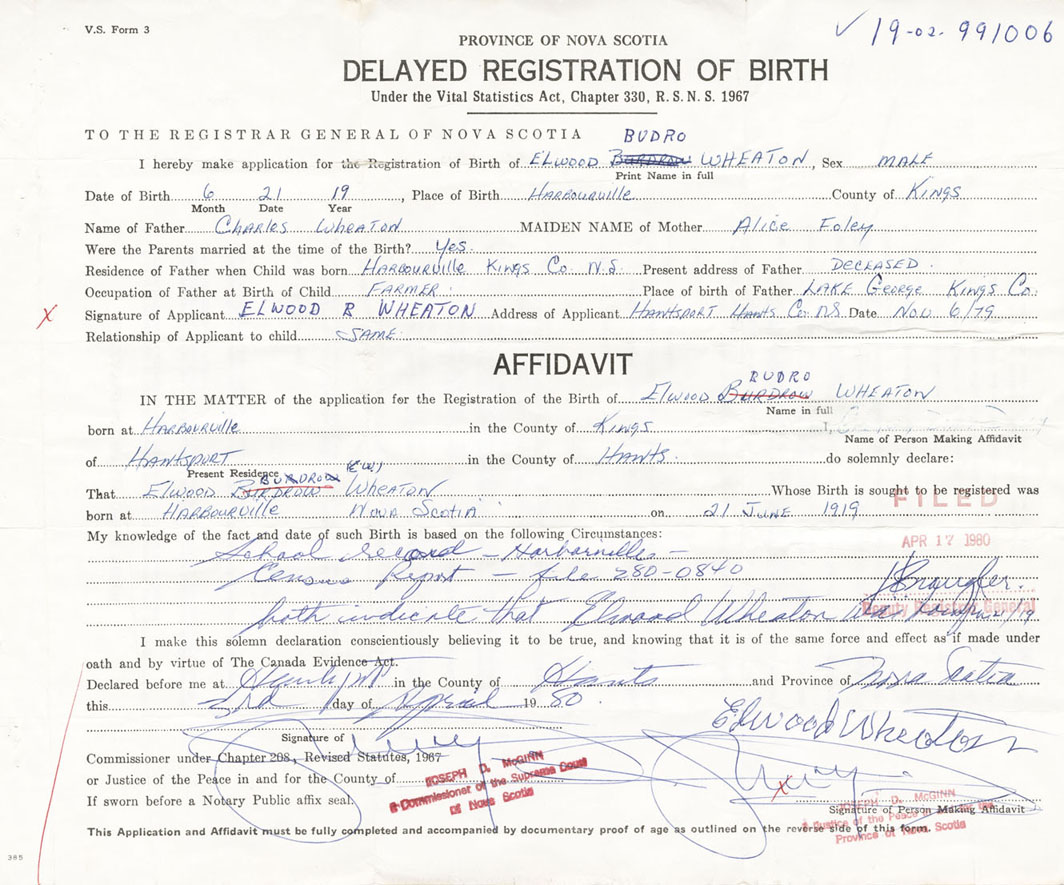 V.S. Form 3
✓ 19-02-991006
PROVINCE OF NOVA SCOTIA
DELAYED REGISTRATION OF BIRTH
Under the Vital Statistics Act, Chapter 330, R. S. N. S. 1967
TO THE REGISTRAR GENERAL OF NOVA SCOTIA
BUDRO
I hereby make application for the Registration of Birth of ELWOOD BURDROW WHEATON, Sex MALE
Print Name in full
Date of Birth 6 21 19, Place of Birth HARBOURVILLE County of KINGS
Month Date Year
Name of Father Charles Wheaton MAIDEN NAME of Mother Alice Foley
Were the Parents married at the time of the Birth? Yes.
Residence of Father when Child was born HARBOURVILLE KINGS Co. N.S. Present address of Father DECEASED.
Occupation of Father at Birth of Child FARMER. Place of birth of Father LAKE George KINGS Co.
X Signature of Applicant ELWOOD B WHEATON Address of Applicant HANTSPORT HANTS Co. NS Date Nov 6/79
Relationship of Applicant to child SAME.
AFFIDAVIT
BUDRO
IN THE MATTER of the application for the Registration of the Birth of ELWOOD BURDROW WHEATON
Name in full
born at HARBOURVILLE in the County of KINGS I,
Name of Person Making Affidavit
of HANTSPORT in the County of HANTS. do solemnly declare:
Present Residence BURDROW (EW)
That ELWOOD BURDROW WHEATON Whose Birth is sought to be registered was
born at HARBOURVILLE NOVA SCOTIA on 21 JUNE 1919
FILED
My knowledge of the fact and date of such Birth is based on the following Circumstances:
APR 17 1980
School record - Harbourville -
Census Report - file 280-0840
Deputy Registrar General
both indicate that Elwood Wheaton was born
I make this solemn declaration conscientiously believing it to be true, and knowing that it is of the same force and effect as if made under
oath and by virtue of The Canada Evidence Act.
Declared before me at Hantsport in the County of Hants and Province of Nova Scotia
this 3rd day of April 19 80.
Elwood Wheaton
Signature of
Commissioner under Chapter 208, Revised Statutes, 1967
or Justice of the Peace in and for the County of
JOSEPH D. McGINN
A Commissioner of the Supreme Court
of Nova Scotia
If sworn before a Notary Public affix seal.
X
Signature of Person Making Affidavit
JOSEPH D. McGINN
A Justice of the Peace
Province of Nova Scotia
This Application and Affidavit must be fully completed and accompanied by documentary proof of age as outlined on the reverse side of this form.
385